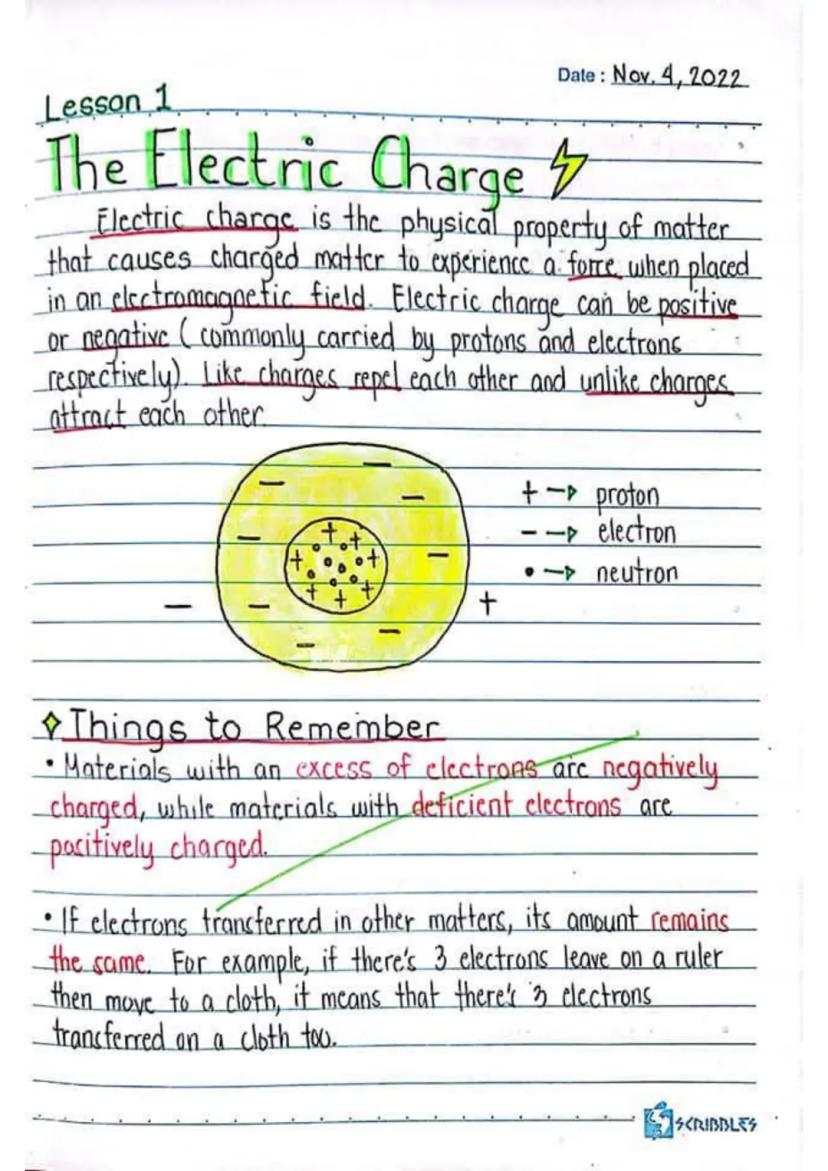 Date : Nov. 4, 2022
Lesson 1
The Electric Charge
Electric charge is the physical property of matter
that causes charged matter to experience a force when placed
in an electromagnetic field. Electric charge can be positive
or negative ( commonly carried by protons and electrons
respectively). Like charges repel each other and unlike charges
attract each other.
+ → proton
− → electron
• → neutron
− +
Things to Remember
• Materials with an excess of electrons are negatively
charged, while materials with deficient electrons are
positively charged.
• If electrons transferred in other matters, its amount remains
the same. For example, if there's 3 electrons leave on a ruler
then move to a cloth, it means that there's 3 electrons
transferred on a cloth too.
SCRIBBLES